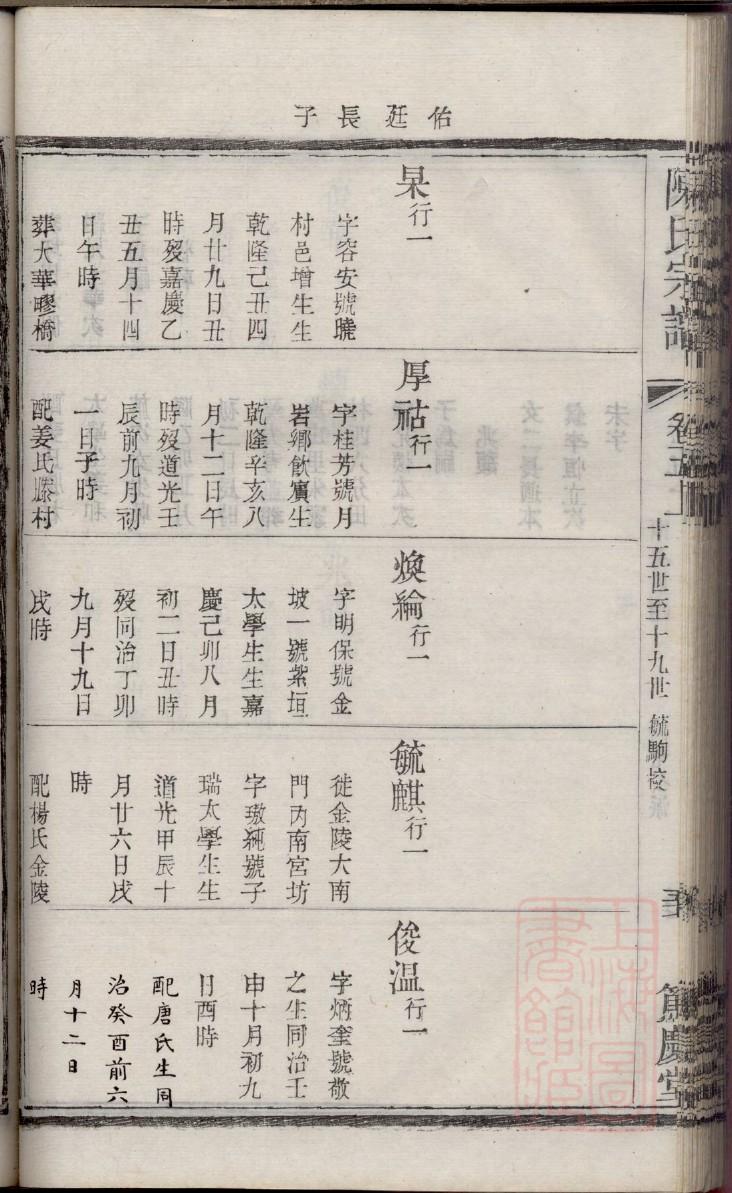 佑廷長子
杲行一
字容安號曉
村邑增生生
乾隆己丑四
月廿九日丑
時歿嘉慶乙
丑五月十四
日午時
葬大華疁橋
厚祜行一
字桂芳號月
岩鄉飲賓生
乾隆辛亥八
月十二日午
時歿道光壬
辰前九月初
一日子時
配姜氏滕村
煥綸行一
字明保號金
坡一號紫垣
太學生生嘉
慶己卯八月
初二日丑時
歿同治丁卯
九月十九日
戌時
毓麒行一
徙金陵大南
門內南宮坊
字璈純號子
瑞太學生生
道光甲辰十
月廿六日戌
時
配楊氏金陵
俊溫行一
字炳奎號敬
之生同治壬
申十月初九
日酉時
配唐氏生同
治癸酉前六
月十二日
時
陳氏宗譜
卷五上
十五世至十九世 毓駒校
篤慶堂
上海圖書館藏